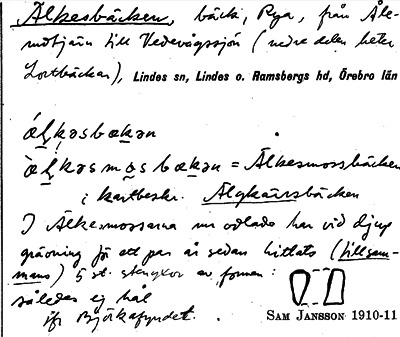 Älkesbäcken, bäck, Rya, från Åle-
motjärn till Vedevågssjön (nedre delen heter
Lortbäcken), Lindes sn, Lindes o. Ramsbergs hd, Örebro län
ä́l̥kəsbækən
Älkəsmosbækən = Älkesmossbäcken
i kartbeskr. Älgkärrsbäcken
I Älkesmossarna nu odlade har vid djup
grävning för ett par år sedan hittats (tillsam-
mans) 5 st. stenyxor av formen:
således ej hål
jfr Björkafyndet.
SAM JANSSON 1910-11